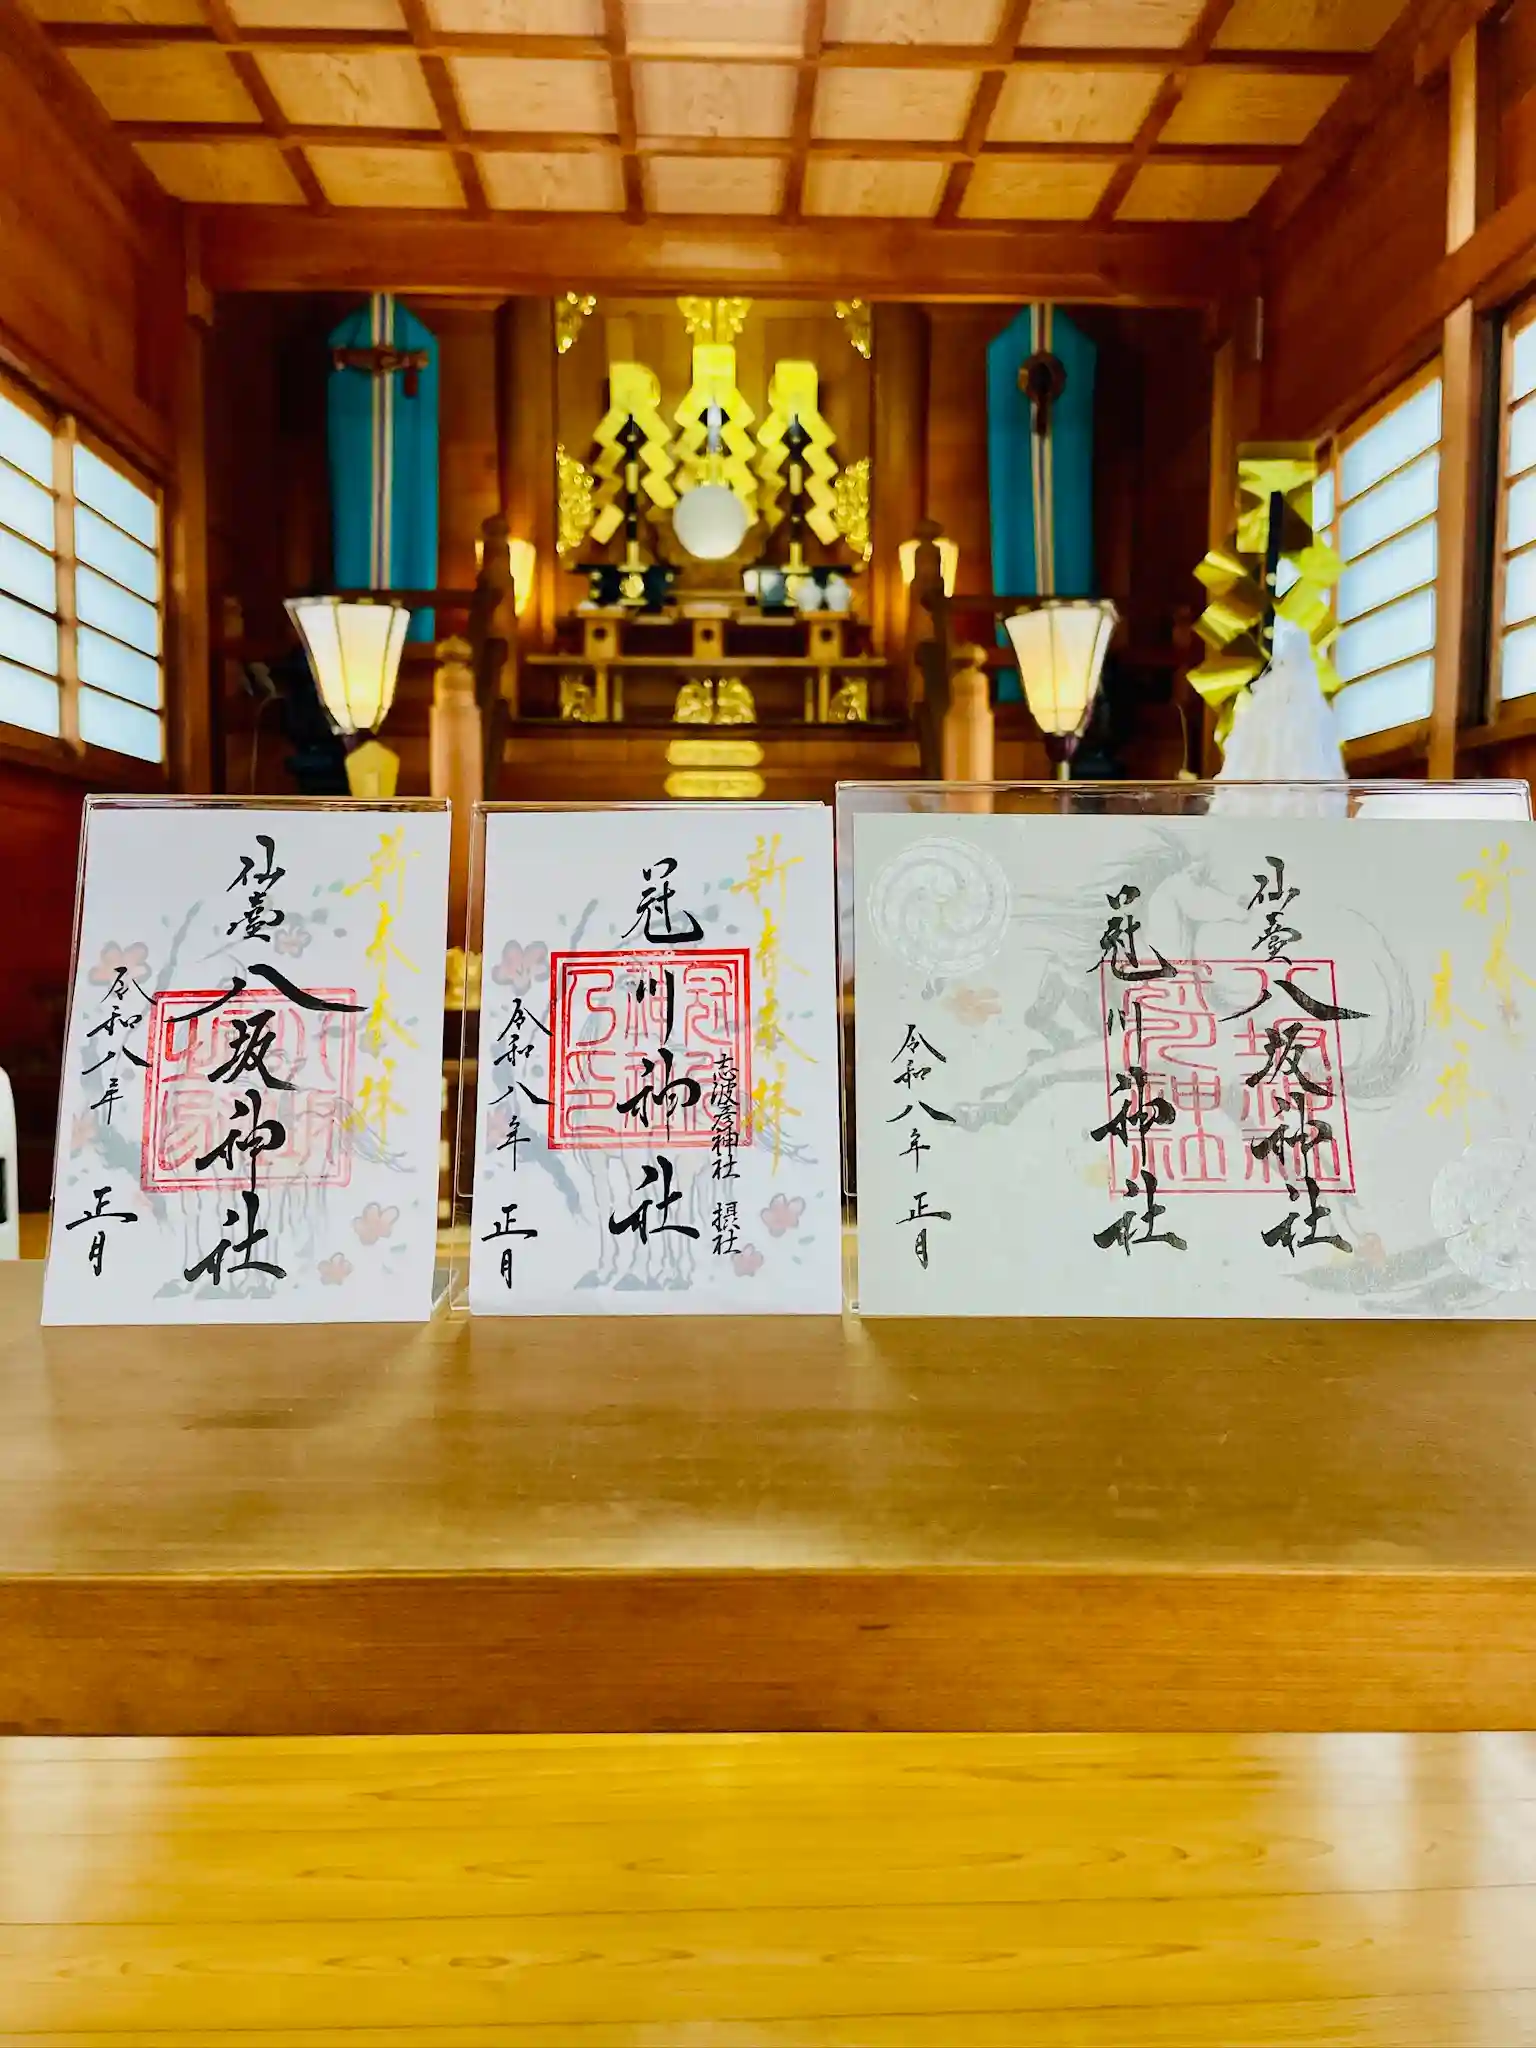 新春奉拝
仙臺八坂神社
令和八年
正月
新春奉拝
志波彦神社 摂社
冠川神社
令和八年
正月
新春奉拝
仙臺八坂神社
冠川神社
令和八年
正月